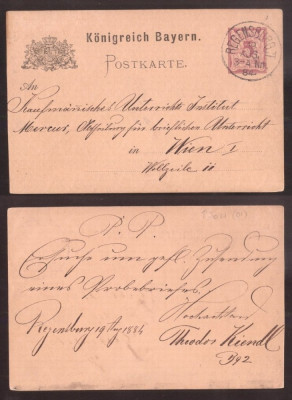 Königreich Bayern.
POSTKARTE.
REGENSBURG I
An
Kaufmännisches Unterrichts Institut
Mercur, für brieflichen Unterricht
in Wien I
Wollzeile 11
P. P.
Ersuche um gefl. Zusendung
eines Probebriefes.
Hochachtend
Regensburg 19 1884
Theodor Kiendl